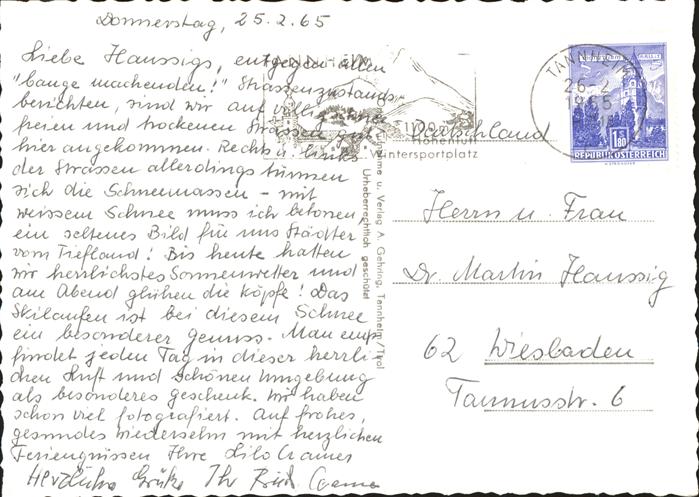 Donnerstag, 25.2.65
Liebe Haussigs, entgegen allen
"bange machenden!" Strassenzustands
berichten, sind wir auf völlig
freien und trockenen Strassen gut
hier angekommen. Rechts u. links
der Strassen allerdings türmen
sich die Schneemassen - mit
weissem Schnee muss ich betonen,
ein seltenes Bild für uns Städter
vom Tiefland! Bis heute hatten
wir herrlichstes Sonnenwetter und
am Abend glühen die Köpfe! Das
Skilaufen ist bei diesem Schnee
ein besonderer Genuss. Man emp-
findet jeden Tag in dieser herrli-
chen Luft und schönen Umgebung
als besonderes Geschenk. Wir haben
schon viel fotografiert. Auf frohes,
gesundes Wiedersehn mit herzlichen
Feriengrüssen Ihre Lilo Cramer
Herzliche Grüße Ihr Cramer
TANNHEIM
1100 m
Höhenluft
Wintersportplatz
Aufnahme u. Verlag A. Gehring, Tannheim/Tirol
Urheberrechtlich geschützt
TANNHEIM
26.2
1965
1.80
REPUBLIK ÖSTERREICH
Deutschland
Herrn u. Frau
Dr. Martin Haussig
62 Wiesbaden
Taunusstr. 6